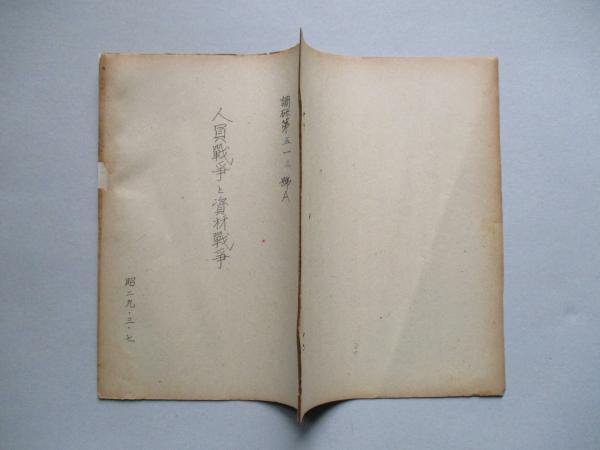 調研第五一三號A
人員戰爭と資材戰爭
昭二九・三・七